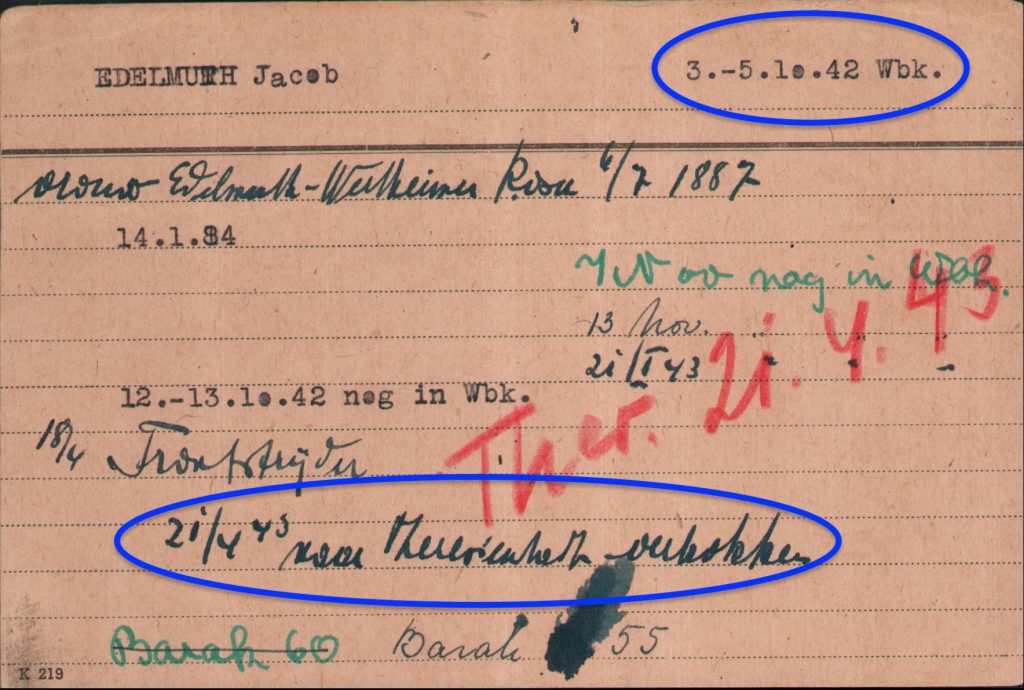 EDELMUTH Jacob 3.-5.10.42 Wbk.
Edelmuth-Wertheimer Rosa 6/7 1887
14.1.84
nog in Wbk.
13 Nov. " " "
21/I 43 " " "
12.-13.10.42 nog in Wbk.
Ther. 21.4.43
18/4 Frontstrijder
21/4 43 naar Theresienstadt vertrokken
Barak 60 Barak 55
K 219